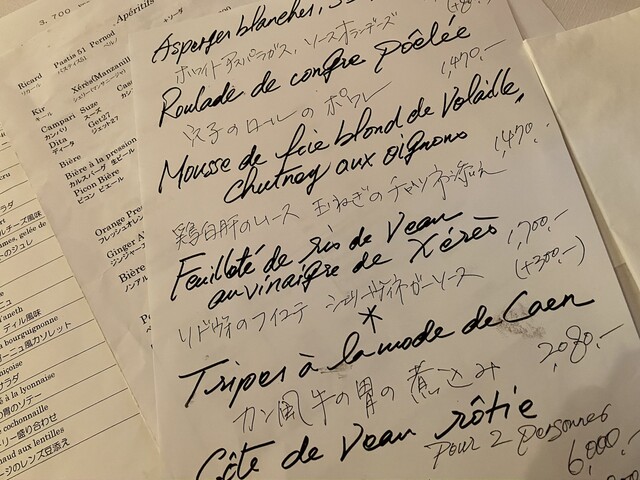 (+80.-)
Asperges blanches, S
ホワイトアスパラガス、ソースオランデーズ
Roulade de congre Poêlée
1,470.-
穴子のロールのポワレ
Mousse de foie blond de Volaille,
chutney aux oignons
1,470.-
鶏白肝のムース 玉ねぎのチャツネ添え
Feuilleté de ris de Veau
au vinaigre de Xérès
1,700.-
(+300.-)
リドヴォのフイユテ シェリーヴィネガーソース
*
Tripes à la mode de Caen
2,080.-
カン風牛の胃の煮込み
Côte de Veau rôtie
Pour 2 personnes
6,000.-
3,700
Apéritifs
Ricard
リカール
Pastis 51
パスティス51
Pernod
ペルノ
Kir
キール
Xérès(Manzanill
シェリー(マンサニージャ)
Campari
カンパリ
Suze
スーズ
Cas
カシ
Dita
ディータ
Get27
ジェット27
Bière
Bière à la pression
カルスバーグ 生ビール
Picon Bière
ピコン ビエール
Orange Pre
フレッシュオレン
Ginger A
ジンジャー
Bière
ノンアル
サラダ
ルチーズ風味
mes, gelée de
のジュレ
ニュ
aneth
ディル風味
bourguignonne
ーニュ風カソレット
niçoise
サラダ
à la lyonnaise
の胃のソテー
cochonnaille
リー盛り合わせ
haud aux lentilles
ージのレンズ豆添え